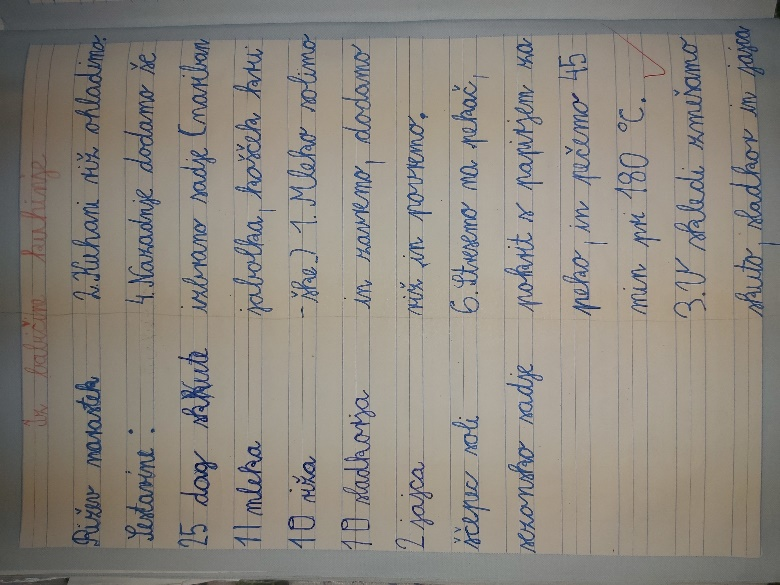 Iz babičine kuhinje
Rižev narastek
Sestavine:
25 dag skute
1 l mleka
10 riža
10 sladkorja
2 jajca
ščepec soli
sezonsko sadje
2. Kuhani riž ohladimo.
4. Nazadnje dodamo še
izbrano sadje (nariban
jabolka, košček hru
-ške.) 1. Mleko solimo
in zavremo, dodamo
riž in povremo.
6. Stresemo na pekač,
pokrit s papirjem za
peko, in pečemo 45
min pri 180 °C.
3. V skledi zmešamo
skuto, sladkor in jajca